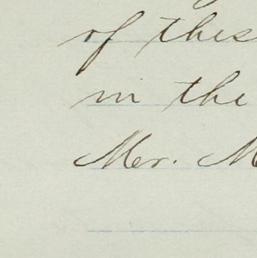 of this
in the
Mr. M